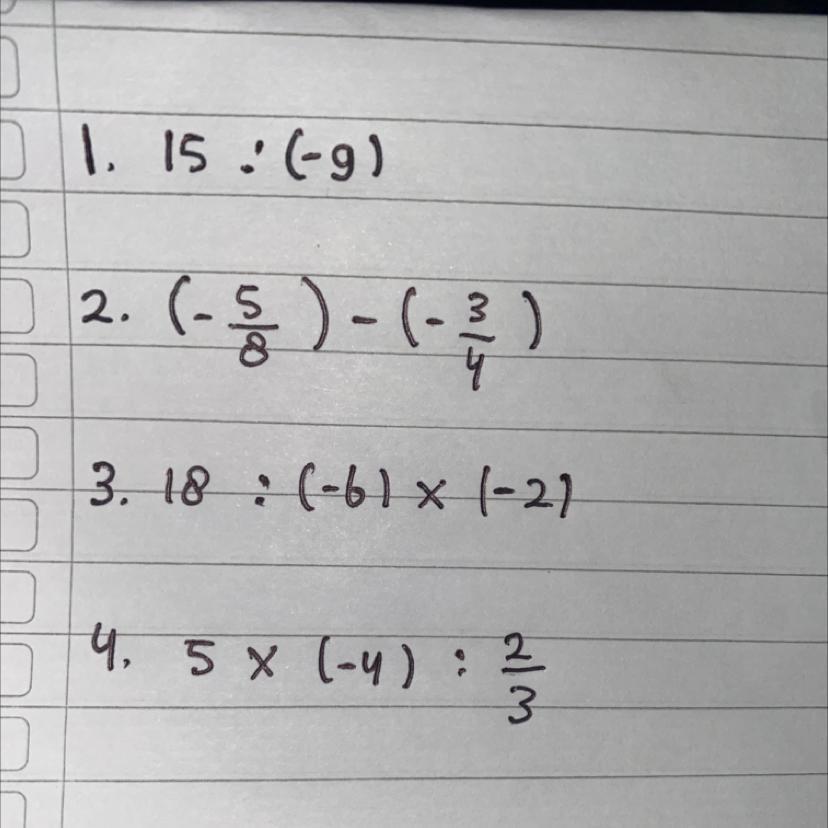 1. 15 : (-9)
2. (- 5/8) - (- 3/4)
3. 18 : (-6) × (-2)
4. 5 × (-4) : 2/3